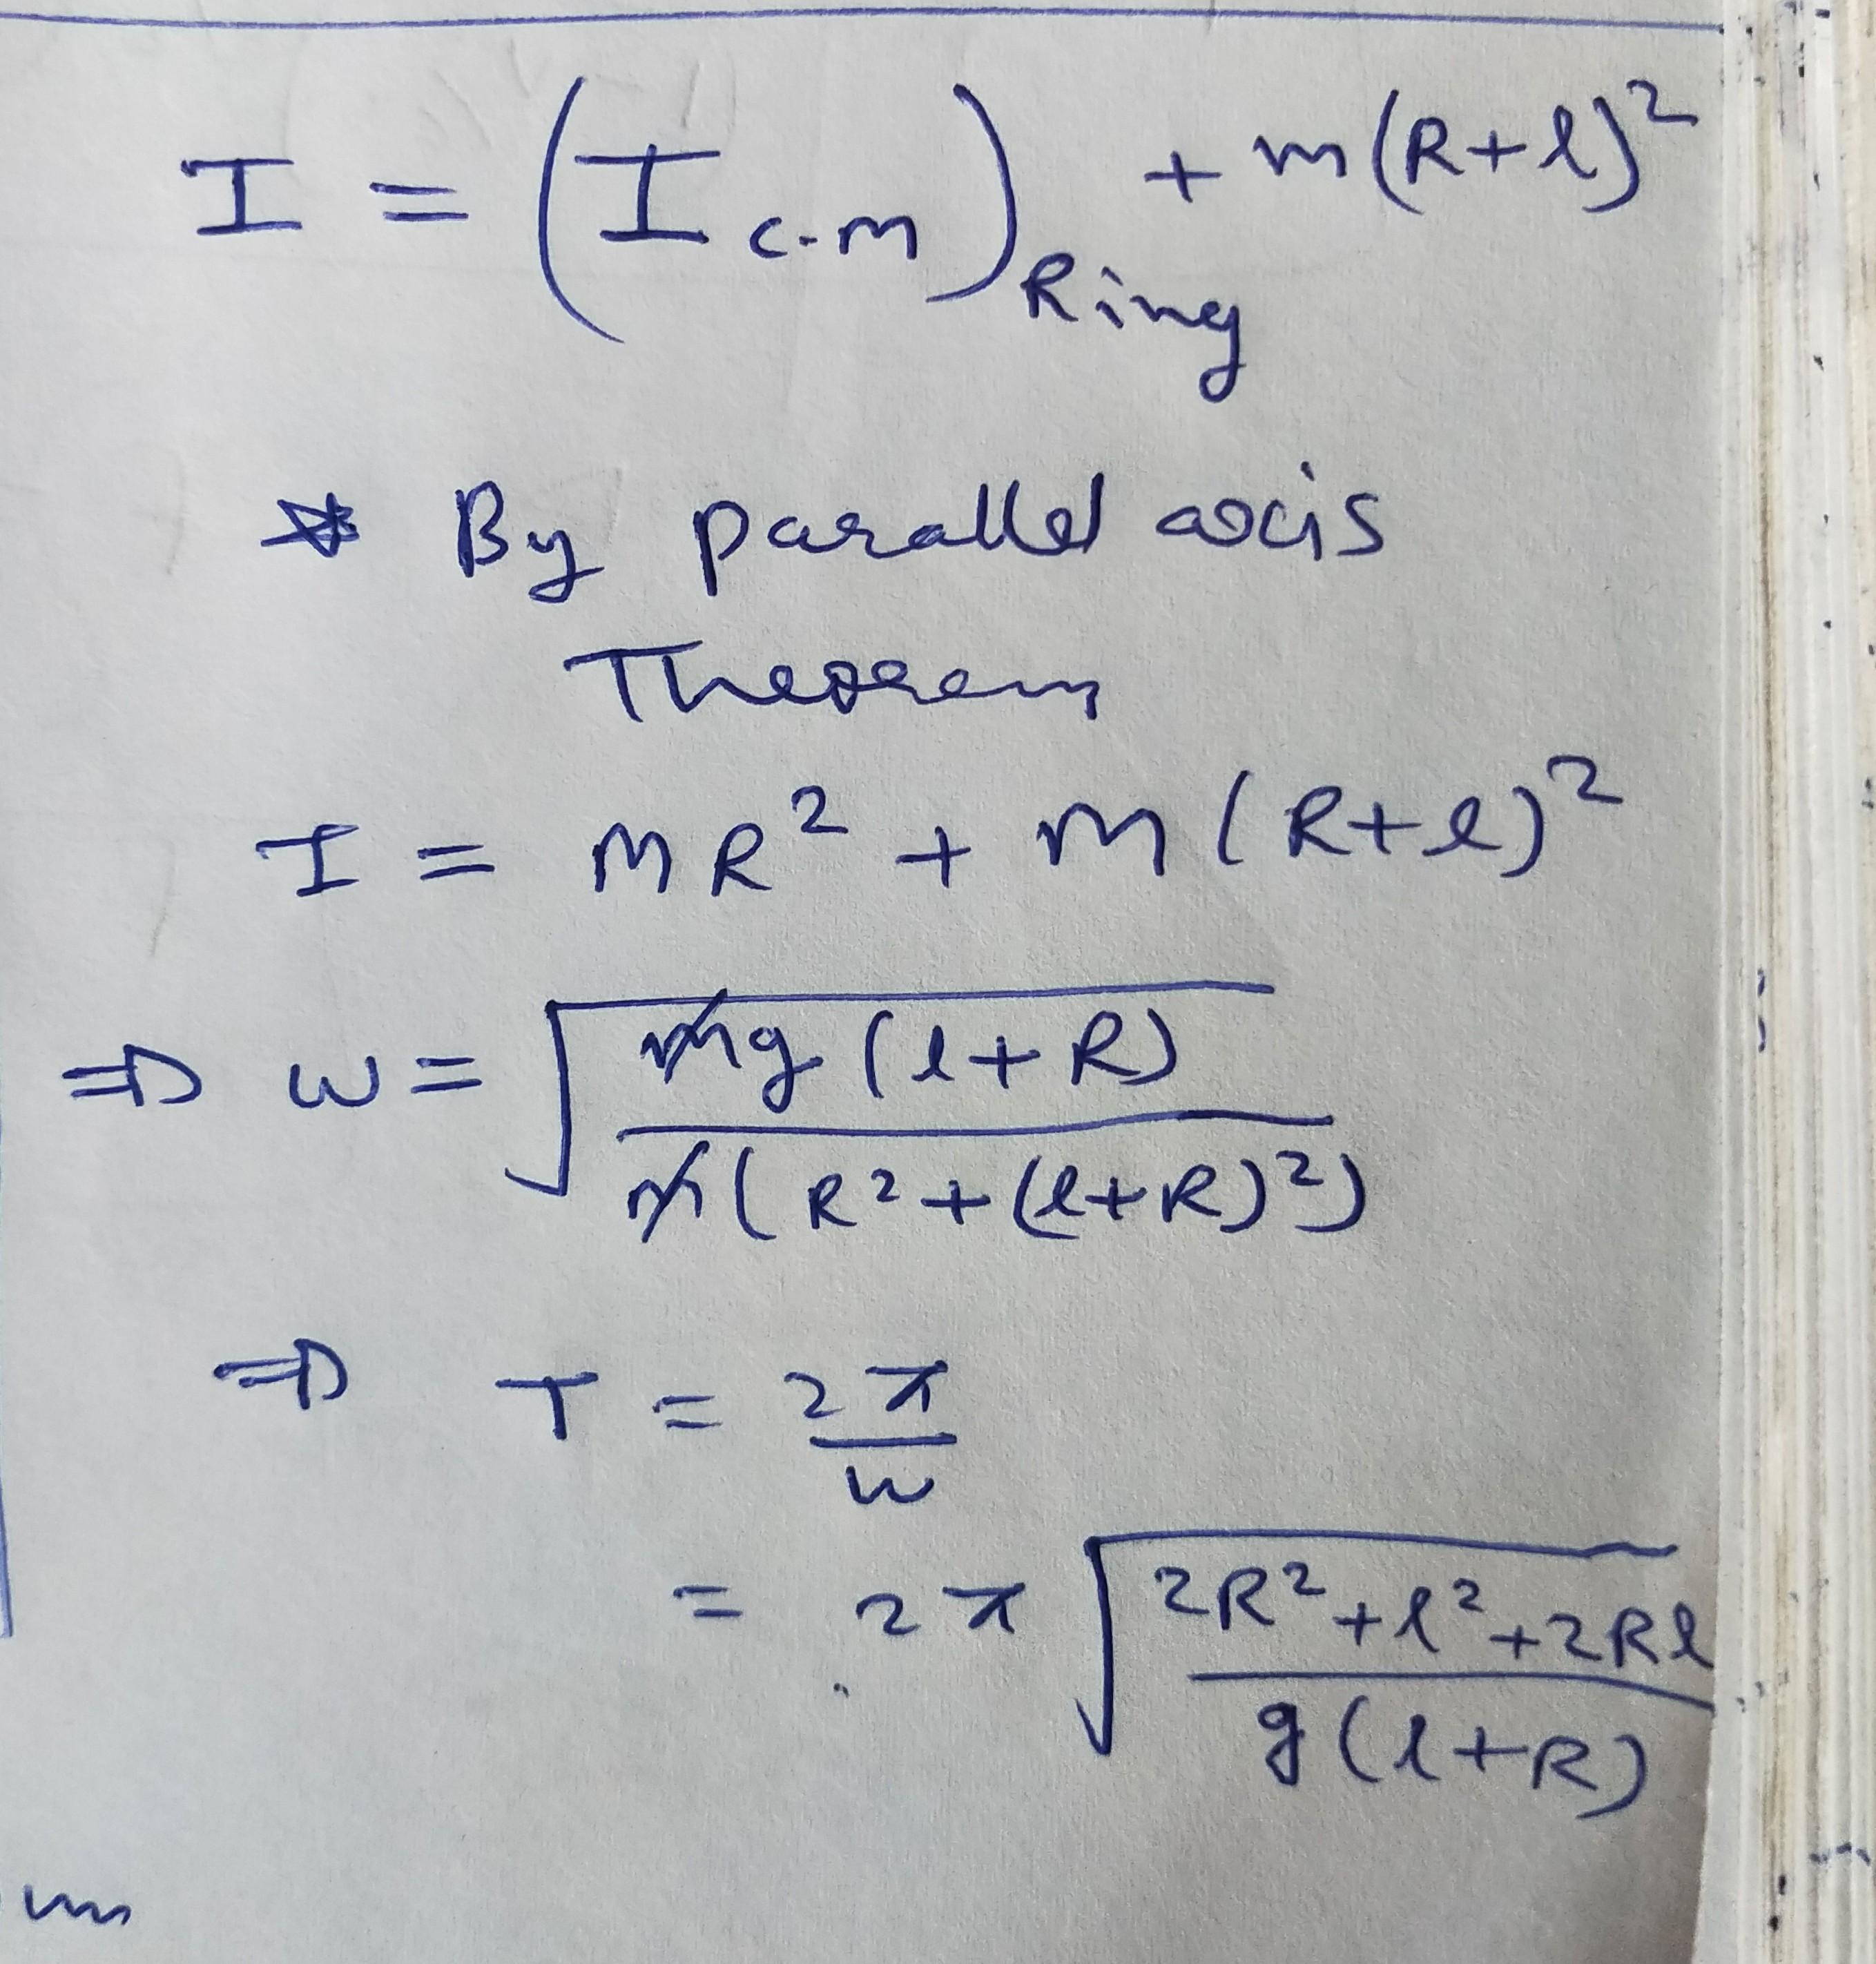 I = (I c.m) Ring + m(R+l)²
* By parallel axis
Theorem
I = MR² + m(R+l)²
⇒ w = √(mg(l+R) / m(R²+(l+R)²))
⇒ T = 2π / w
= 2π √(2R²+l²+2Rl / g(l+R))